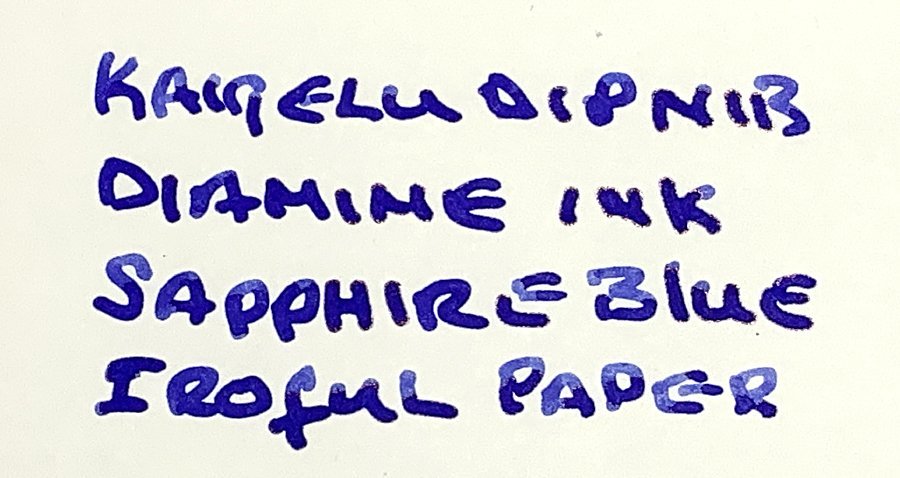 KAIGELU DIPNIB
DIAMINE INK
SAPPHIRE BLUE
IROFUL PAPER